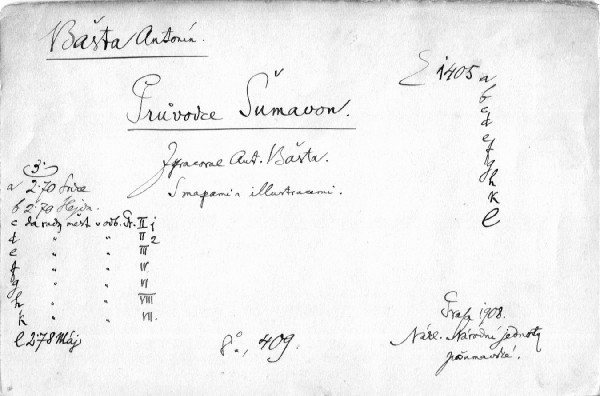 Bašta Antonín.
E 1405 a
b
c
d
e
f
g
h
k
l
Průvodce Šumavou.
Zpracoval Ant. Bašta.
S mapami a illustracemi.
3.
a 2·70
b 2·70
c da rady měst v odb. Čt. II 1
d " " " II 2
e " " " III
f " " " IV
g " " " VI
h " " " VIII
k " " " VII.
l 2·78 Máj
8°., 409.
Praha 1908.
Nákl. Národní jednoty
pošumavské.